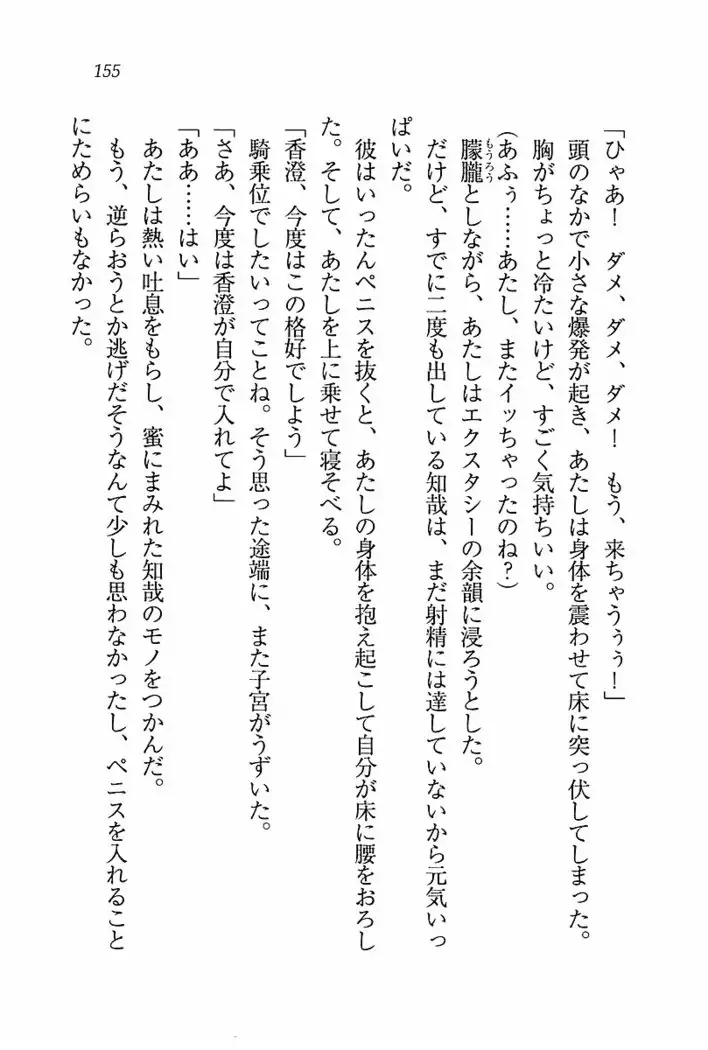 155
「ひゃあ！　ダメ、ダメ、ダメ！　もう、来ちゃうぅぅ！」
頭のなかで小さな爆発が起き、あたしは身体を震わせて床に突っ伏してしまった。
胸がちょっと冷たいけど、すごく気持ちいい。
（あふぅ……あたし、またイッちゃったのね？）
朦朧（もうろう）としながら、あたしはエクスタシーの余韻に浸ろうとした。
だけど、すでに二度も出している知哉は、まだ射精には達していないから元気いっ
ぱいだ。
彼はいったんペニスを抜くと、あたしの身体を抱え起こして自分が床に腰をおろし
た。そして、あたしを上に乗せて寝そべる。
「香澄、今度はこの格好でしよう」
騎乗位でしたいってことね。そう思った途端に、また子宮がうずいた。
「さあ、今度は香澄が自分で入れてよ」
「ああ……はい」
あたしは熱い吐息をもらし、蜜にまみれた知哉のモノをつかんだ。
もう、逆らおうとか逃げだそうなんて少しも思わなかったし、ペニスを入れること
にためらいもなかった。